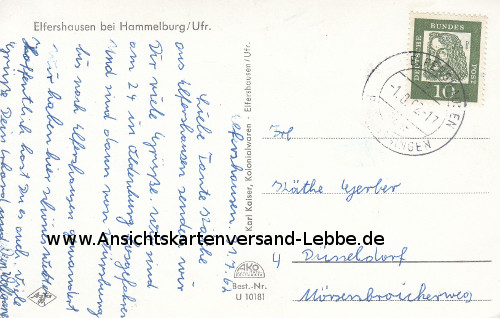 Elfershausen bei Hammelburg/Ufr.
Elfershausen,
Liebe Tante Käthe
aus Elfershausen senden wir
Dir viele Grüße. Wir sind
am 24 in abgefahren
und sind dann von
bis nach Elfershausen gewandert
Wir haben hier schönes Wetter
Hoffentlich hast Du es auch. Viele
Grüße Dein und
Karl Kaiser, Kolonialwaren - Elfershausen/Ufr.
AKO
Best.-Nr.
U 10181
Agfa
DEUTSCHE BUNDESPOST
10
Frl
Käthe Gerber
4 Düsseldorf
Mörsenbroicherweg
www.Ansichtskartenversand-Lebbe.de